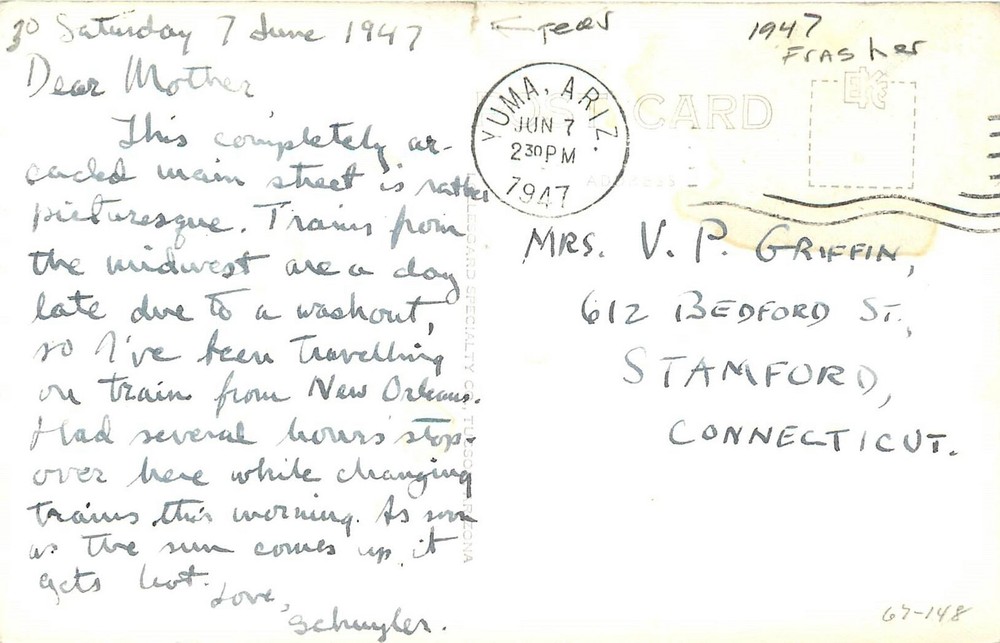 30 Saturday 7 June 1947
Dear Mother
This completely ar-
caded main street is rather
picturesque. Trains from
the midwest are a day
late due to a washout,
so I've been travelling
on train from New Orleans.
Had several hours stop-
over here while changing
trains this morning. As soon
as the sun comes up it
gets hot.
Love,
Schuyler.
1947
Frasher
POST CARD
ADDRESS
YUMA, ARIZ.
JUN 7
2 30 PM
1947
MRS. V. P. GRIFFIN,
612 BEDFORD ST.,
STAMFORD,
CONNECTICUT.
CARD SPECIALTY CO., TUCSON, ARIZONA
67-148